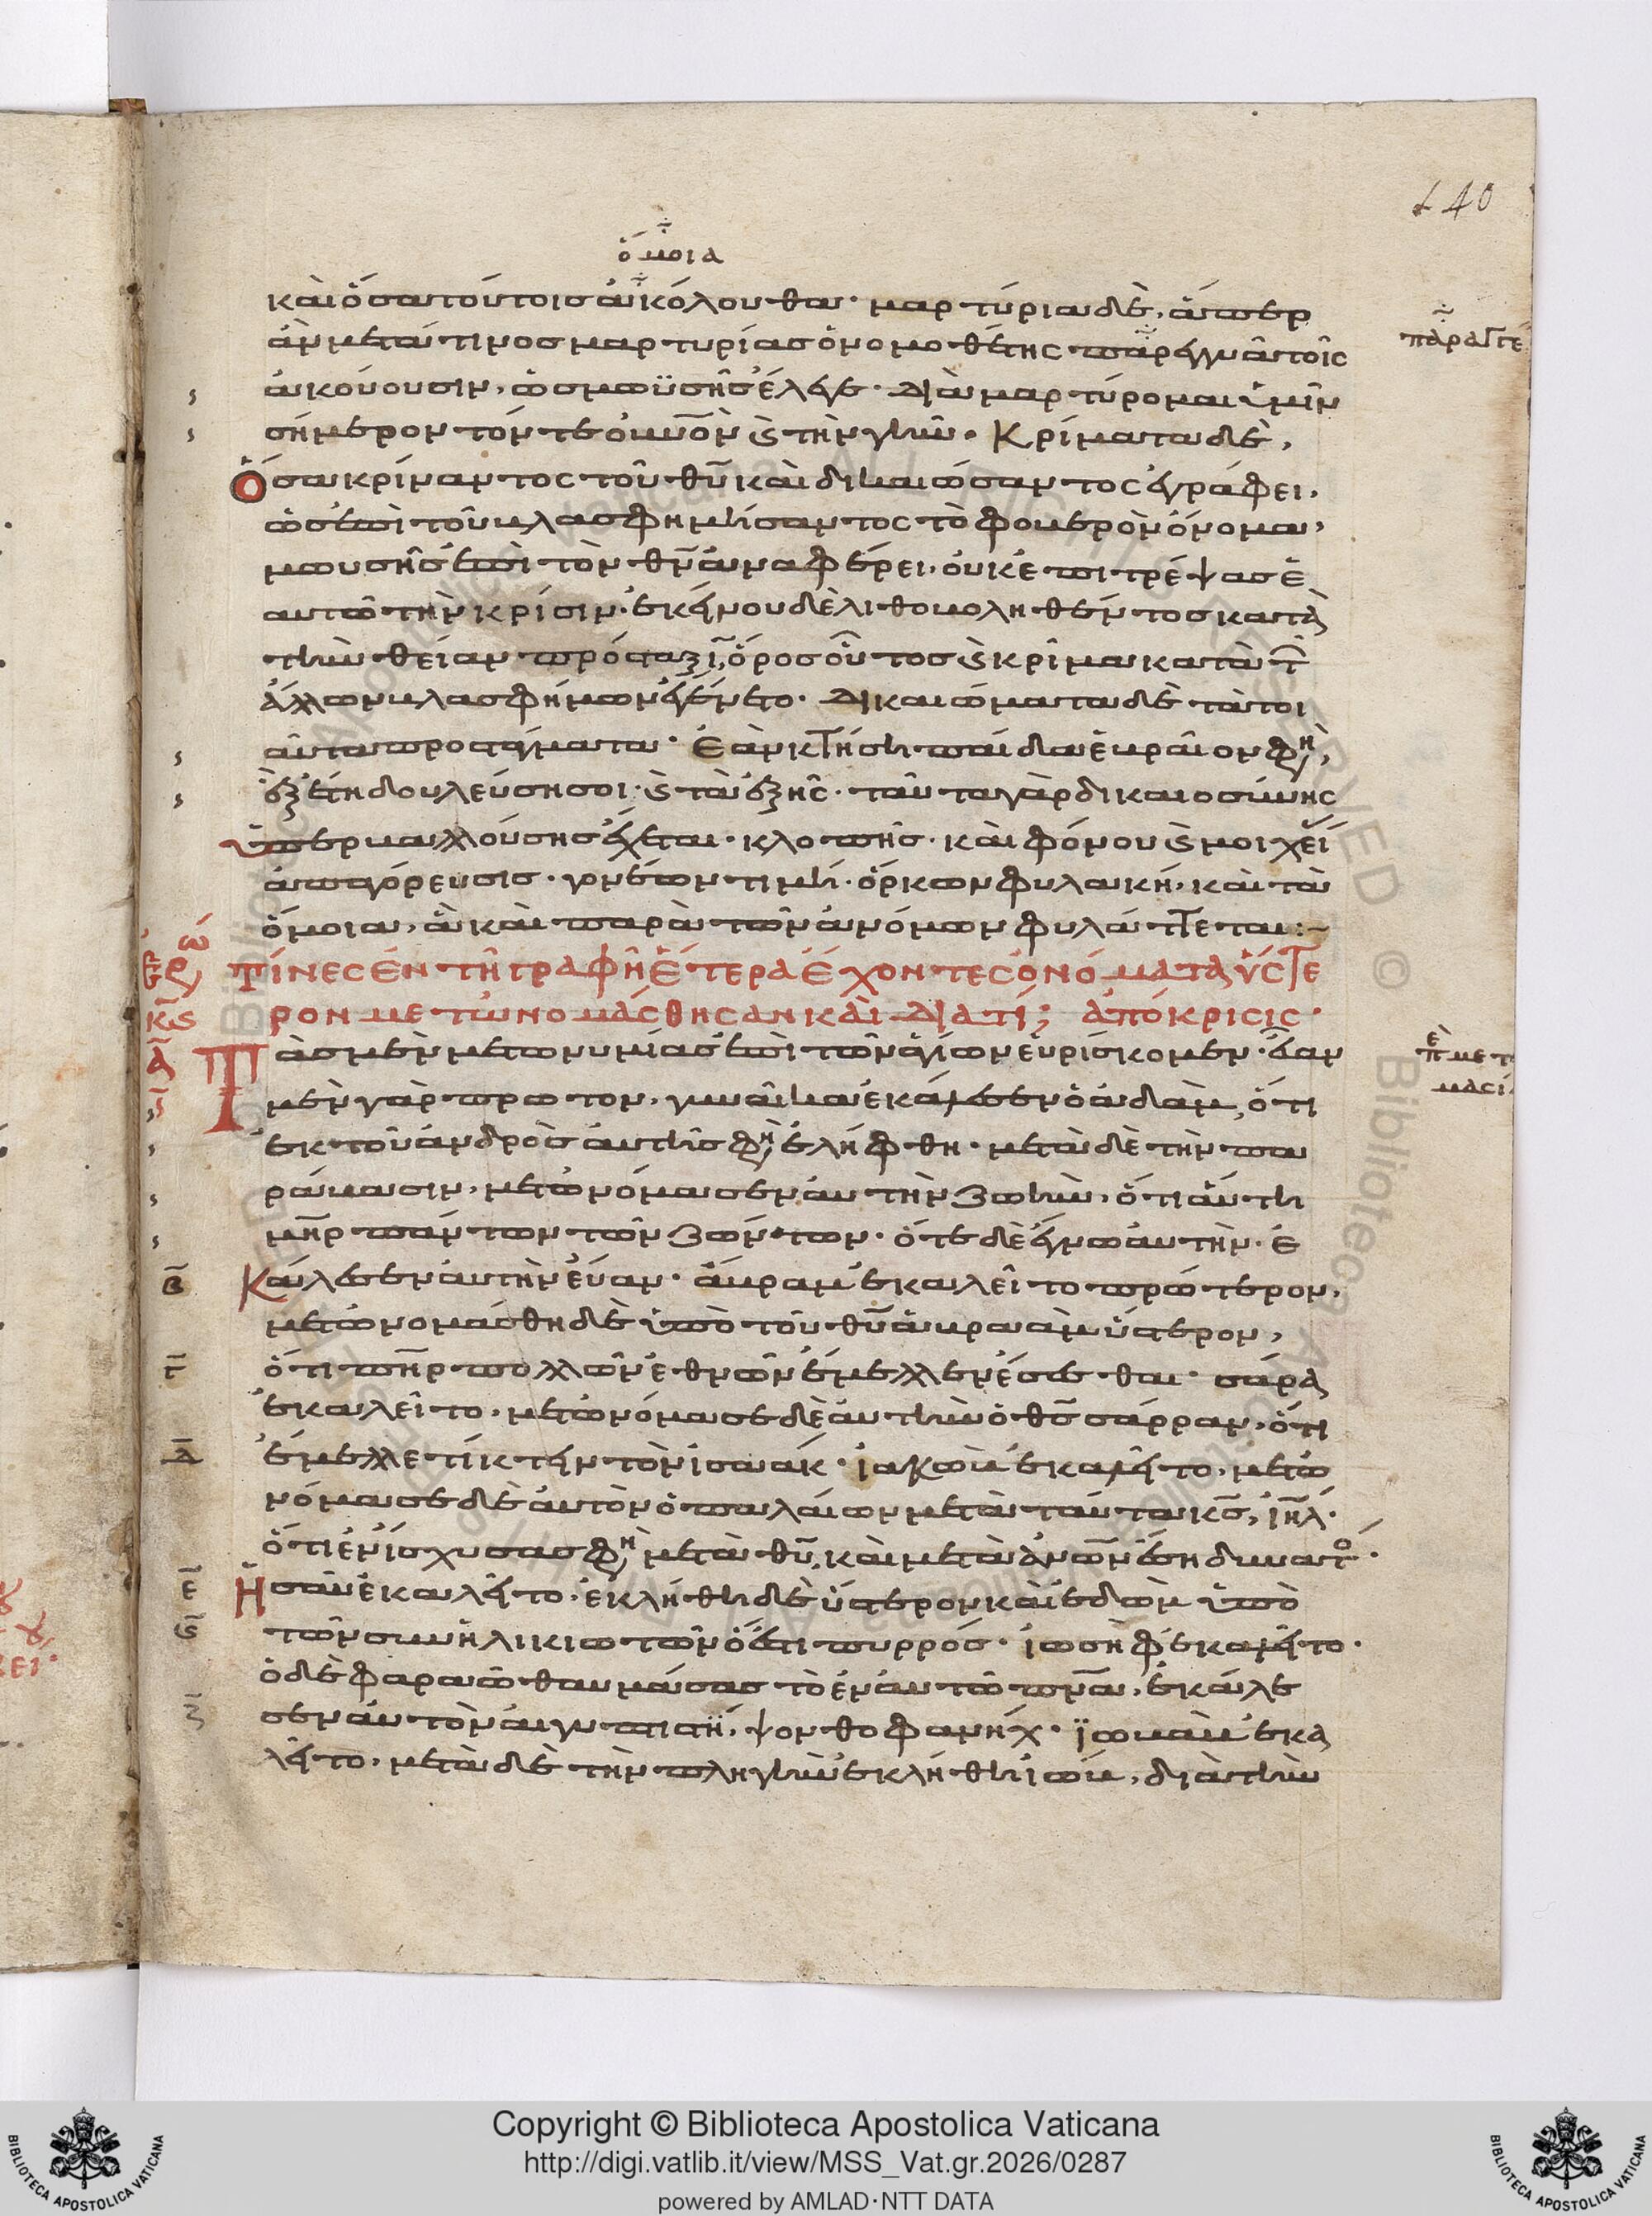 140
ὅμοια
καὶ ὅσα τούτοις ἀκόλουθα· μαρτύρια δὲ, ἅπερ
ἂν μετά τινος μαρτυρίας ὁ νομοθέτης παρεγγυᾷ τοῖς
παραγγέ
ἀκούουσιν, ὡς μωϋσῆς ἔλεγε· διαμαρτύρομαι ὑμῖν
σήμερον τόν τε οὐνὸν καὶ τὴν γῆν· Κρίματα δὲ,
ὅσα κρίναντος τοῦ θυ καὶ δικαιώσαντος ἐγράφει,
ὡς ἐπὶ τοῦ βλασφημήσαντος τὸ φοβερὸν ὄνομα,
μωυσῆς ἐπὶ τὸν θν ἀναφέρει, οὐκ ἐπιτρέψας ἑ
αυτῶ τὴν κρίσιν· ἐκείνου δὲ λιθοβοληθέντος κατὰ
τὴν θείαν πρόσταξιν, ὅρος οὗτος καὶ κρῖμα κατὰ τῶν
ἄλλων βλασφήμων ἐγένετο· Δικαιώματα δὲ τὰ τοι
αῦτα προστάγματα· Ἐὰν κτήσῃ παῖδα ἑβραῖον φη,
ἓξ ἔτη δουλεύσῃ σοι· καὶ τὰ ἑξῆς· ταῦτα γὰρ δικαιοσύνης
ὑπερβαλλούσης ἔχεται· κλοπῆς· καὶ φόνου καὶ μοιχεί
ἀπαγόρευσις· γονέων τιμὴ· ὅρκων φυλακή, καὶ τὰ
ὅμοια, ἃ καὶ παρὰ τῶν ἀνόμων φυλάττεται:~
ἐρώ
κς ΤΊΝΕC ἘΝ ΤΗ ΓΡΑΦΗ ἝΤΕΡΑ ἜΧΟΝΤΕC ὈΝΌΜΑΤΑ ὝCΤΕ
ΡΟΝ ΜΕΤΩΝΟΜΆCΘΗCΑΝ ΚΑῚ ΔΙΑΤΊ; ἈΠΌΚΡΙCΙC·
α Πὰσ μὲν μετωνυμίας ἐπὶ τῶν ἁγίων εὑρίσκομεν· εὔαν
μὲν γὰρ πρῶτον, γυναῖκα ἐκάλεσεν ὁ ἀδὰμ, ὅτι
ἐκ τοῦ ἀνδρὸς αὐτῆς φη ἐλήφθη· μετὰ δὲ τὴν πα
ράβασιν, μετωνόμασεν αὐτὴν ζωὴν, ὅτι αὕτη
μηρ πάντων τῶν ζώντων· ὅτε δὲ ἔγνω αὐτὴν· ἐ
β Κάλεσεν αὐτὴν εὔαν· ἄβραμ ἐκαλεῖτο πρότερον,
μετωνομάσθη δὲ ὑπὸ τοῦ θυ ἁβραὰμ ὕστερον,
γ ὅτι πηρ πολλῶν ἐθνῶν ἔμελλεν ἔσεσθαι· σάρα
ἐκαλεῖτο, μετωνόμασε δὲ αὐτὴν ὁ θς σάρραν, ὅτι
δ ἔμελλε τίκτειν τὸν ἰσαάκ· ἰακὼβ ἐκαλεῖτο, μετω
νόμασε δὲ αὐτὸν ὁ παλαίων μετὰ ταῦτα κς, ἰηλ·
ὅτι ἐνίσχυσας φη μετὰ θυ, καὶ μετὰ ἀνων ἔσῃ δυνατο·
ε Ἠσαῦ ἐκαλεῖτο, ἐκλήθη δὲ ὕστερον καὶ ἐδὼμ ὑπὸ
ς τῶν συνηλικιωτῶν ὅ ἐστι πυρρός· ἰωσὴφ ἐκαλεῖτο·
ὁ δὲ φαραὼ θαυμάσας τὸ ἐν αὐτῶ πνα, ἐκάλε
ζ σεν αὐτὸν αἰγυπτιστὶ, ψονθοφανήχ· ϊωβὰβ ἐκα
λεῖτο, μετὰ δὲ τὴν πληγὴν ἐκλήθη ἰώβ, διὰ τὴν
Copyright © Biblioteca Apostolica Vaticana
http://digi.vatlib.it/view/MSS_Vat.gr.2026/0287
powered by AMLAD·NTT DATA
BIBLIOTECA APOSTOLICA VATICANA
BIBLIOTECA APOSTOLICA VATICANA